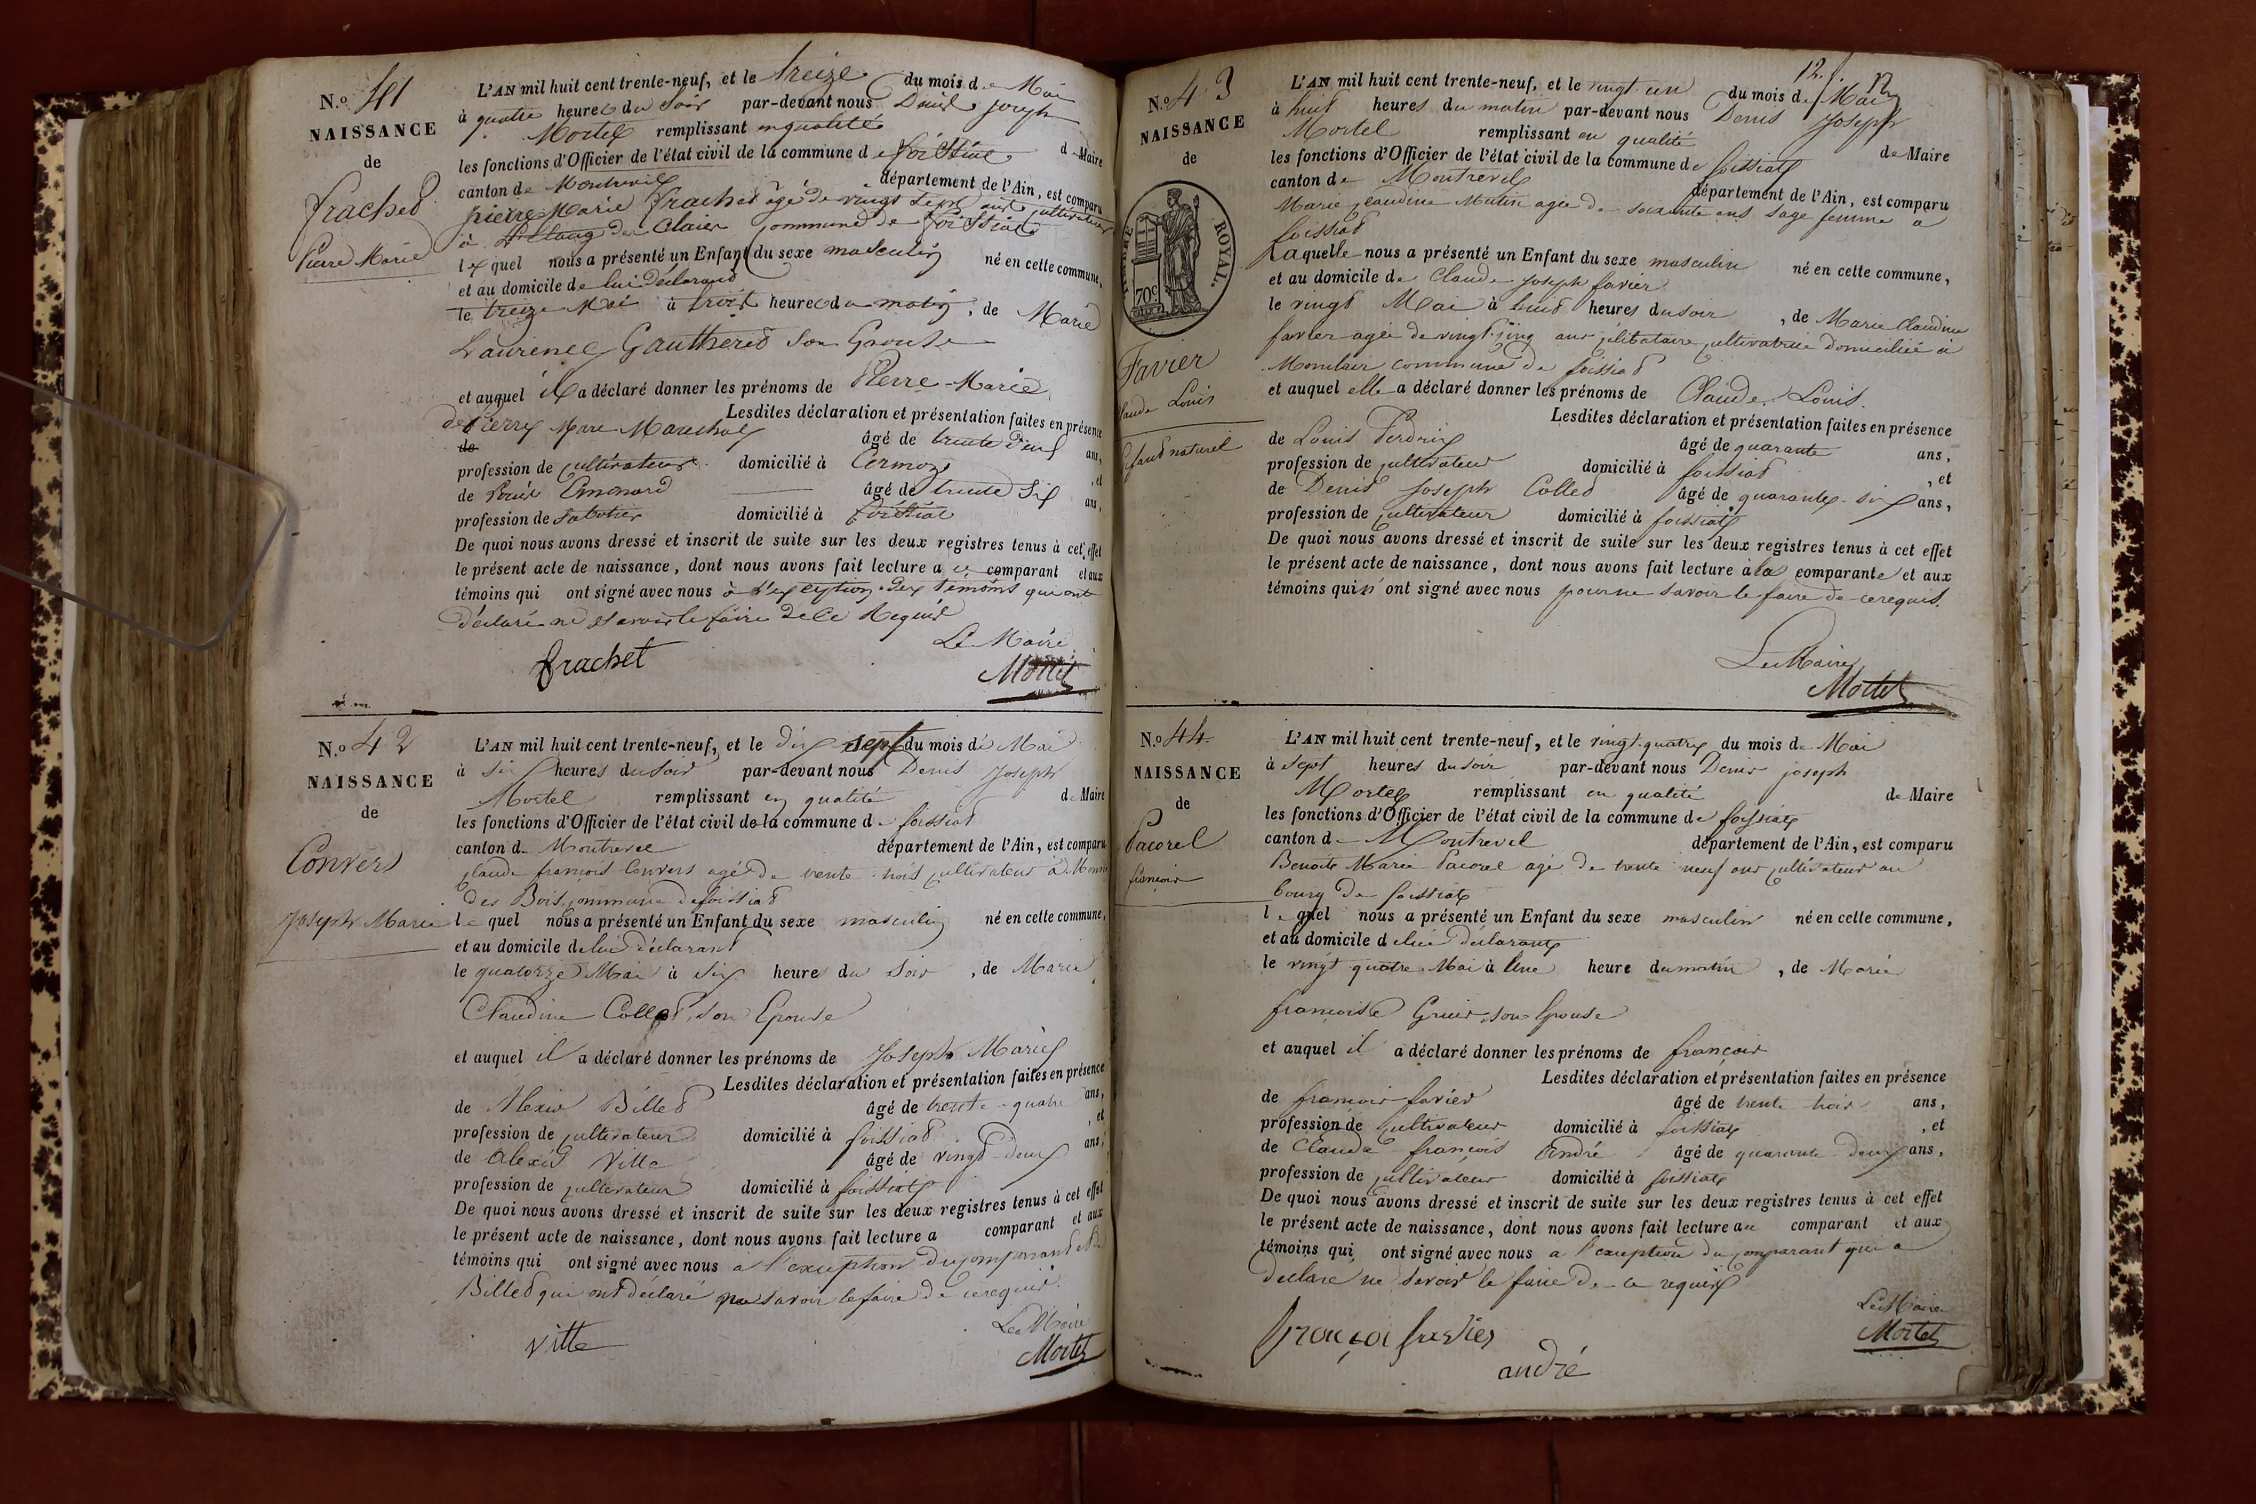 N.o 41
NAISSANCE
de
frachet
Pierre Marie
L'AN mil huit cent trente-neuf, et le treize du mois de Mai
à quatre heures du Soir par-devant nous Denis joseph
Mortel remplissant en qualité de Maire
les fonctions d'Officier de l'état civil de la commune de foissiat
canton de Montrevel département de l'Ain, est comparu
pierre Marie frachet âgé de vingt sept ans cultivateur
à des Claies commune de foissiat
lequel nous a présenté un Enfant du sexe masculin né en cette commune,
et au domicile de lui déclarant
le treize Mai à trois heures du matin, de Marie
Laurence Gautheret son Epouse
et auquel il a déclaré donner les prénoms de Pierre-Marie
Lesdites déclaration et présentation faites en présence
de Pierre Marie Marechal âgé de trente deux ans,
profession de cultivateur domicilié à Cormoz, et
de Louis Emonard âgé de trente six ans,
profession de Sabotier domicilié à foissiat
De quoi nous avons dressé et inscrit de suite sur les deux registres tenus à cet effet
le présent acte de naissance, dont nous avons fait lecture a ce comparant et aux
témoins qui ont signé avec nous à l'exception des témoins qui ont
déclaré ne savoir le faire de ce Requis
Le Maire
frachet
Mortel
N.o 42
NAISSANCE
de
Convers
Joseph Marie
L'AN mil huit cent trente-neuf, et le dix sept du mois de Mai
à six heures du soir par-devant nous Denis Joseph
Mortel remplissant en qualité de Maire
les fonctions d'Officier de l'état civil de la commune de foissiat
canton de Montrevel département de l'Ain, est comparu
claude françois Convers agé de trente trois cultivateur à
des Bois commune de foissiat
lequel nous a présenté un Enfant du sexe masculin né en cette commune,
et au domicile de lui déclarant
le quatorze Mai à six heures du soir, de Marie
Claudine Collet, son Epouse
et auquel il a déclaré donner les prénoms de Joseph Marie
Lesdites déclaration et présentation faites en présence
de Alexis Billet âgé de trente-quatre ans,
profession de cultivateur domicilié à foissiat, et
de Alexis Vitte âgé de vingt-deux ans,
profession de cultivateur domicilié à foissiat
De quoi nous avons dressé et inscrit de suite sur les deux registres tenus à cet effet
le présent acte de naissance, dont nous avons fait lecture a comparant et aux
témoins qui ont signé avec nous a l'exception du comparant et de
Billet qui ont déclaré ne savoir le faire de ce requis.
Le Maire
Vitte
Mortel
12. f. 12
N.o 43
NAISSANCE
de
TIMBRE ROYAL
70c
Favier
Claude Louis
Enfant naturel
L'AN mil huit cent trente-neuf, et le vingt un du mois de Mai
à huit heures du matin par-devant nous Denis Joseph
Mortel remplissant en qualité de Maire
les fonctions d'Officier de l'état civil de la commune de foissiat
canton de Montrevel département de l'Ain, est comparu
Marie claudine Mutin agée de soixante ans sage femme a
foissiat
Laquelle nous a présenté un Enfant du sexe masculin né en cette commune,
et au domicile de Claude Joseph favier
le vingt Mai à huit heures du soir, de Marie Claudine
favier agée de vingt-cinq ans célibataire cultivatrice domiciliée à
Monclair commune de foissiat
et auquel elle a déclaré donner les prénoms de Claude Louis.
Lesdites déclaration et présentation faites en présence
de Louis Perdrix âgé de quarante ans,
profession de cultivateur domicilié à foissiat, et
de Denis Joseph Collet âgé de quarante-six ans,
profession de cultivateur domicilié à foissiat
De quoi nous avons dressé et inscrit de suite sur les deux registres tenus à cet effet
le présent acte de naissance, dont nous avons fait lecture à la comparante et aux
témoins qui n'ont signé avec nous pour ne savoir le faire de ce requis.
Le Maire
Mortel
N.o 44
NAISSANCE
de
Pacorel
françois
L'AN mil huit cent trente-neuf, et le vingt-quatre du mois de Mai
à sept heures du soir par-devant nous Denis joseph
Mortel remplissant en qualité de Maire
les fonctions d'Officier de l'état civil de la commune de foissiat
canton de Montrevel département de l'Ain, est comparu
Benoite Marie Pacorel agé de trente neuf ans cultivateur au
bourg de foissiat
lequel nous a présenté un Enfant du sexe masculin né en cette commune,
et au domicile de lui déclarant
le vingt quatre Mai à Une heure du matin, de Marie
françoise son Epouse
et auquel il a déclaré donner les prénoms de françois
Lesdites déclaration et présentation faites en présence
de françois favier âgé de trente trois ans,
profession de cultivateur domicilié à foissiat, et
de Claude françois André âgé de quarante-deux ans,
profession de cultivateur domicilié à foissiat
De quoi nous avons dressé et inscrit de suite sur les deux registres tenus à cet effet
le présent acte de naissance, dont nous avons fait lecture au comparant et aux
témoins qui ont signé avec nous a l'exception du comparant qui a
déclaré ne savoir le faire de ce requis
Le Maire
françoi favier
Mortel
andré